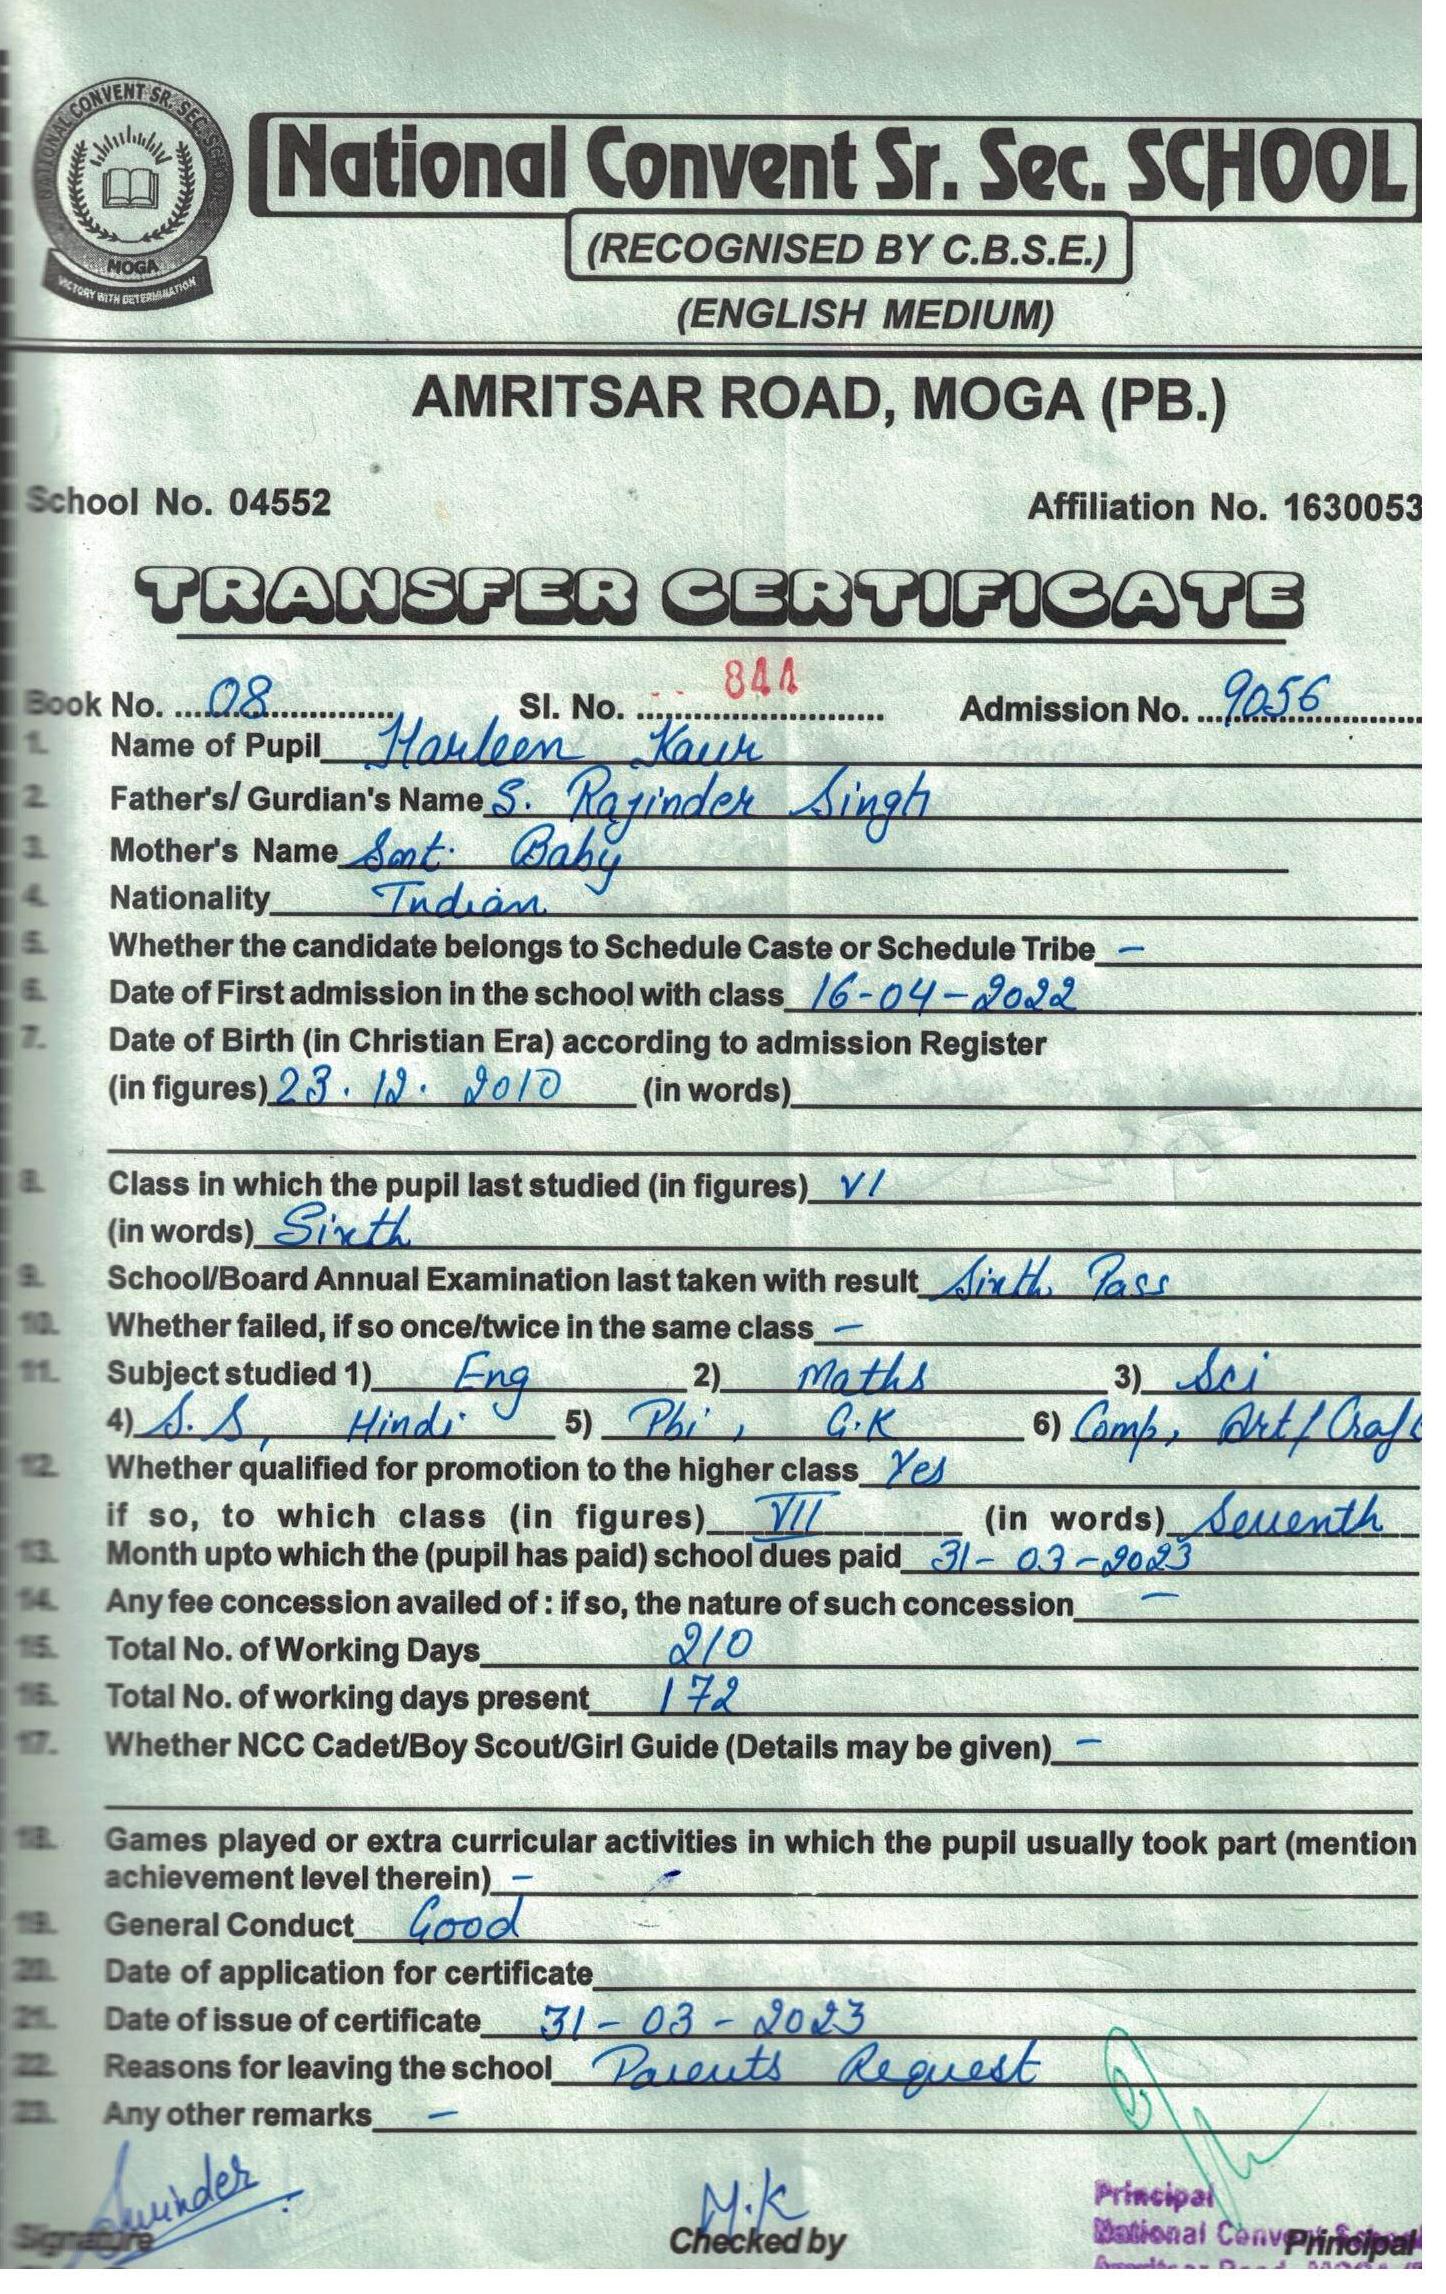 NATIONAL CONVENT SR. SEC. SCHOOL
MOGA
VICTORY WITH DETERMINATION
National Convent Sr. Sec. SCHOOL
(RECOGNISED BY C.B.S.E.)
(ENGLISH MEDIUM)
AMRITSAR ROAD, MOGA (PB.)
School No. 04552 Affiliation No. 1630053
TRANSFER CERTIFICATE
Book No. 08 Sl. No. 844 Admission No. 9056
1. Name of Pupil Harleen Kaur
2. Father's/ Gurdian's Name S. Rajinder Singh
3. Mother's Name Smt. Baby
4. Nationality Indian
5. Whether the candidate belongs to Schedule Caste or Schedule Tribe –
6. Date of First admission in the school with class 16-04-2022
7. Date of Birth (in Christian Era) according to admission Register
(in figures) 23.12.2010 (in words)
8. Class in which the pupil last studied (in figures) VI
(in words) Sixth
9. School/Board Annual Examination last taken with result Sixth Pass
10. Whether failed, if so once/twice in the same class –
11. Subject studied 1) Eng 2) Maths 3) Sci
4) S.S, Hindi 5) Pbi, G.K 6) Comp, Art/Craft
12. Whether qualified for promotion to the higher class Yes
if so, to which class (in figures) VII (in words) Seventh
13. Month upto which the (pupil has paid) school dues paid 31-03-2023
14. Any fee concession availed of : if so, the nature of such concession –
15. Total No. of Working Days 210
16. Total No. of working days present 172
17. Whether NCC Cadet/Boy Scout/Girl Guide (Details may be given) –
18. Games played or extra curricular activities in which the pupil usually took part (mention
achievement level therein) –
19. General Conduct Good
20. Date of application for certificate
21. Date of issue of certificate 31-03-2023
22. Reasons for leaving the school Parents Request
23. Any other remarks –
M.K
Principal
National Convent School
Signature Checked by Principal